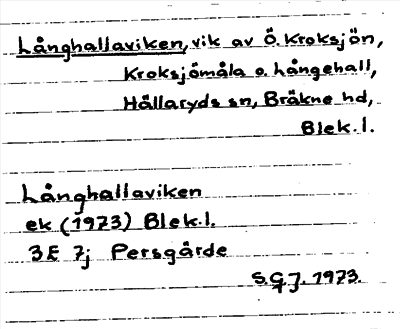 Långhallaviken, vik av Ö. Kroksjön,
Kroksjömåla o. Långehall,
Hällaryds sn, Bräkne hd,
Blek. l.
Långhallaviken
ek (1973) Blek. l.
3E 7j Persgärde
S.G.J. 1973.